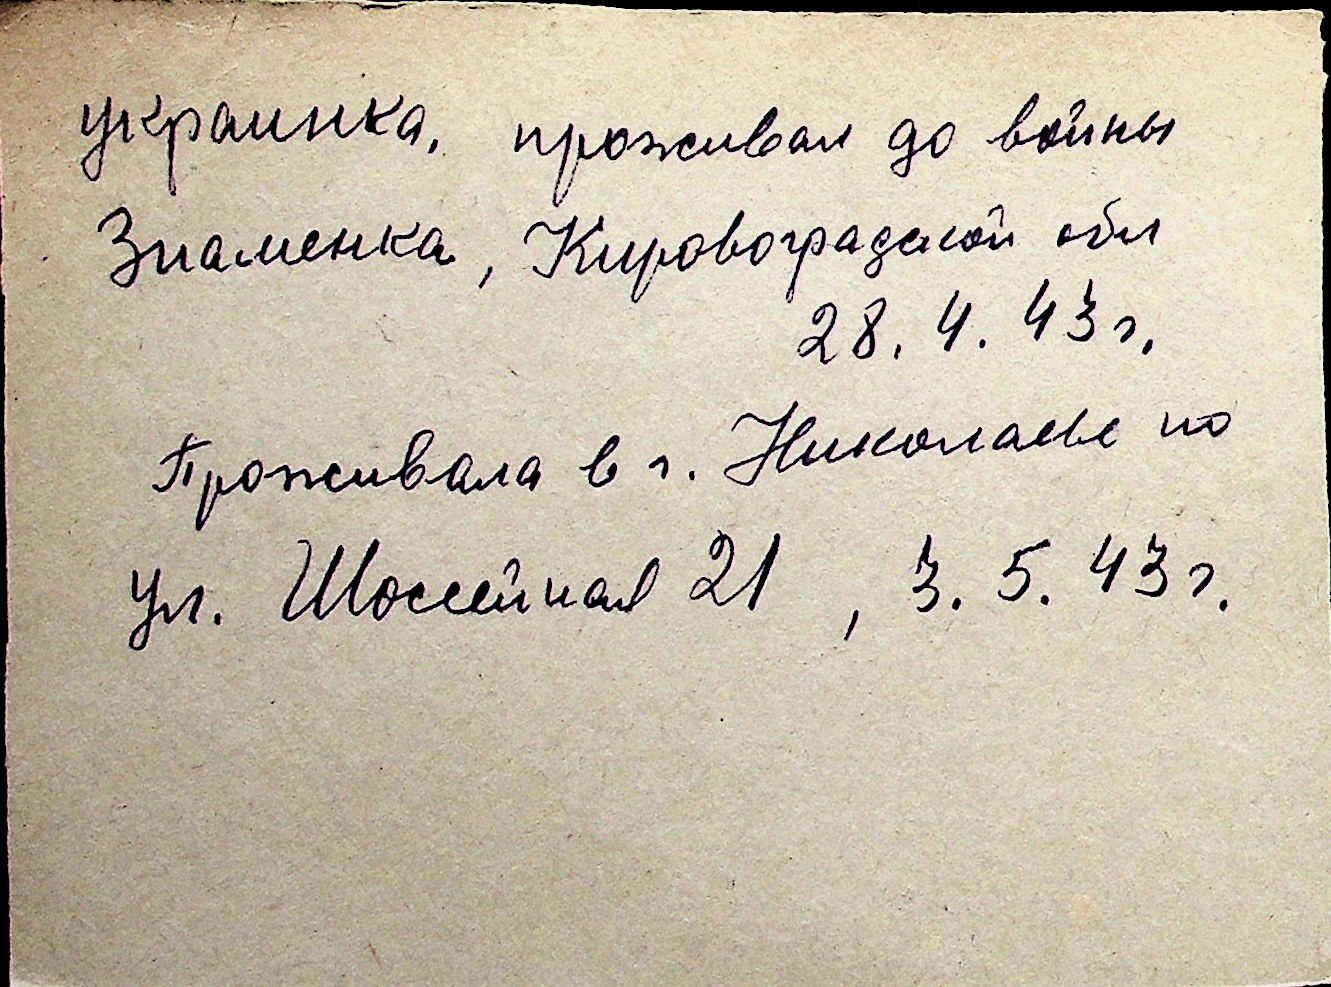 украинка, проживал до войны
Знаменка, Кировоградской обл
28. 4. 43 г.
Проживала в г. Николаеве по
ул. Шоссейная 21 , 3. 5. 43 г.